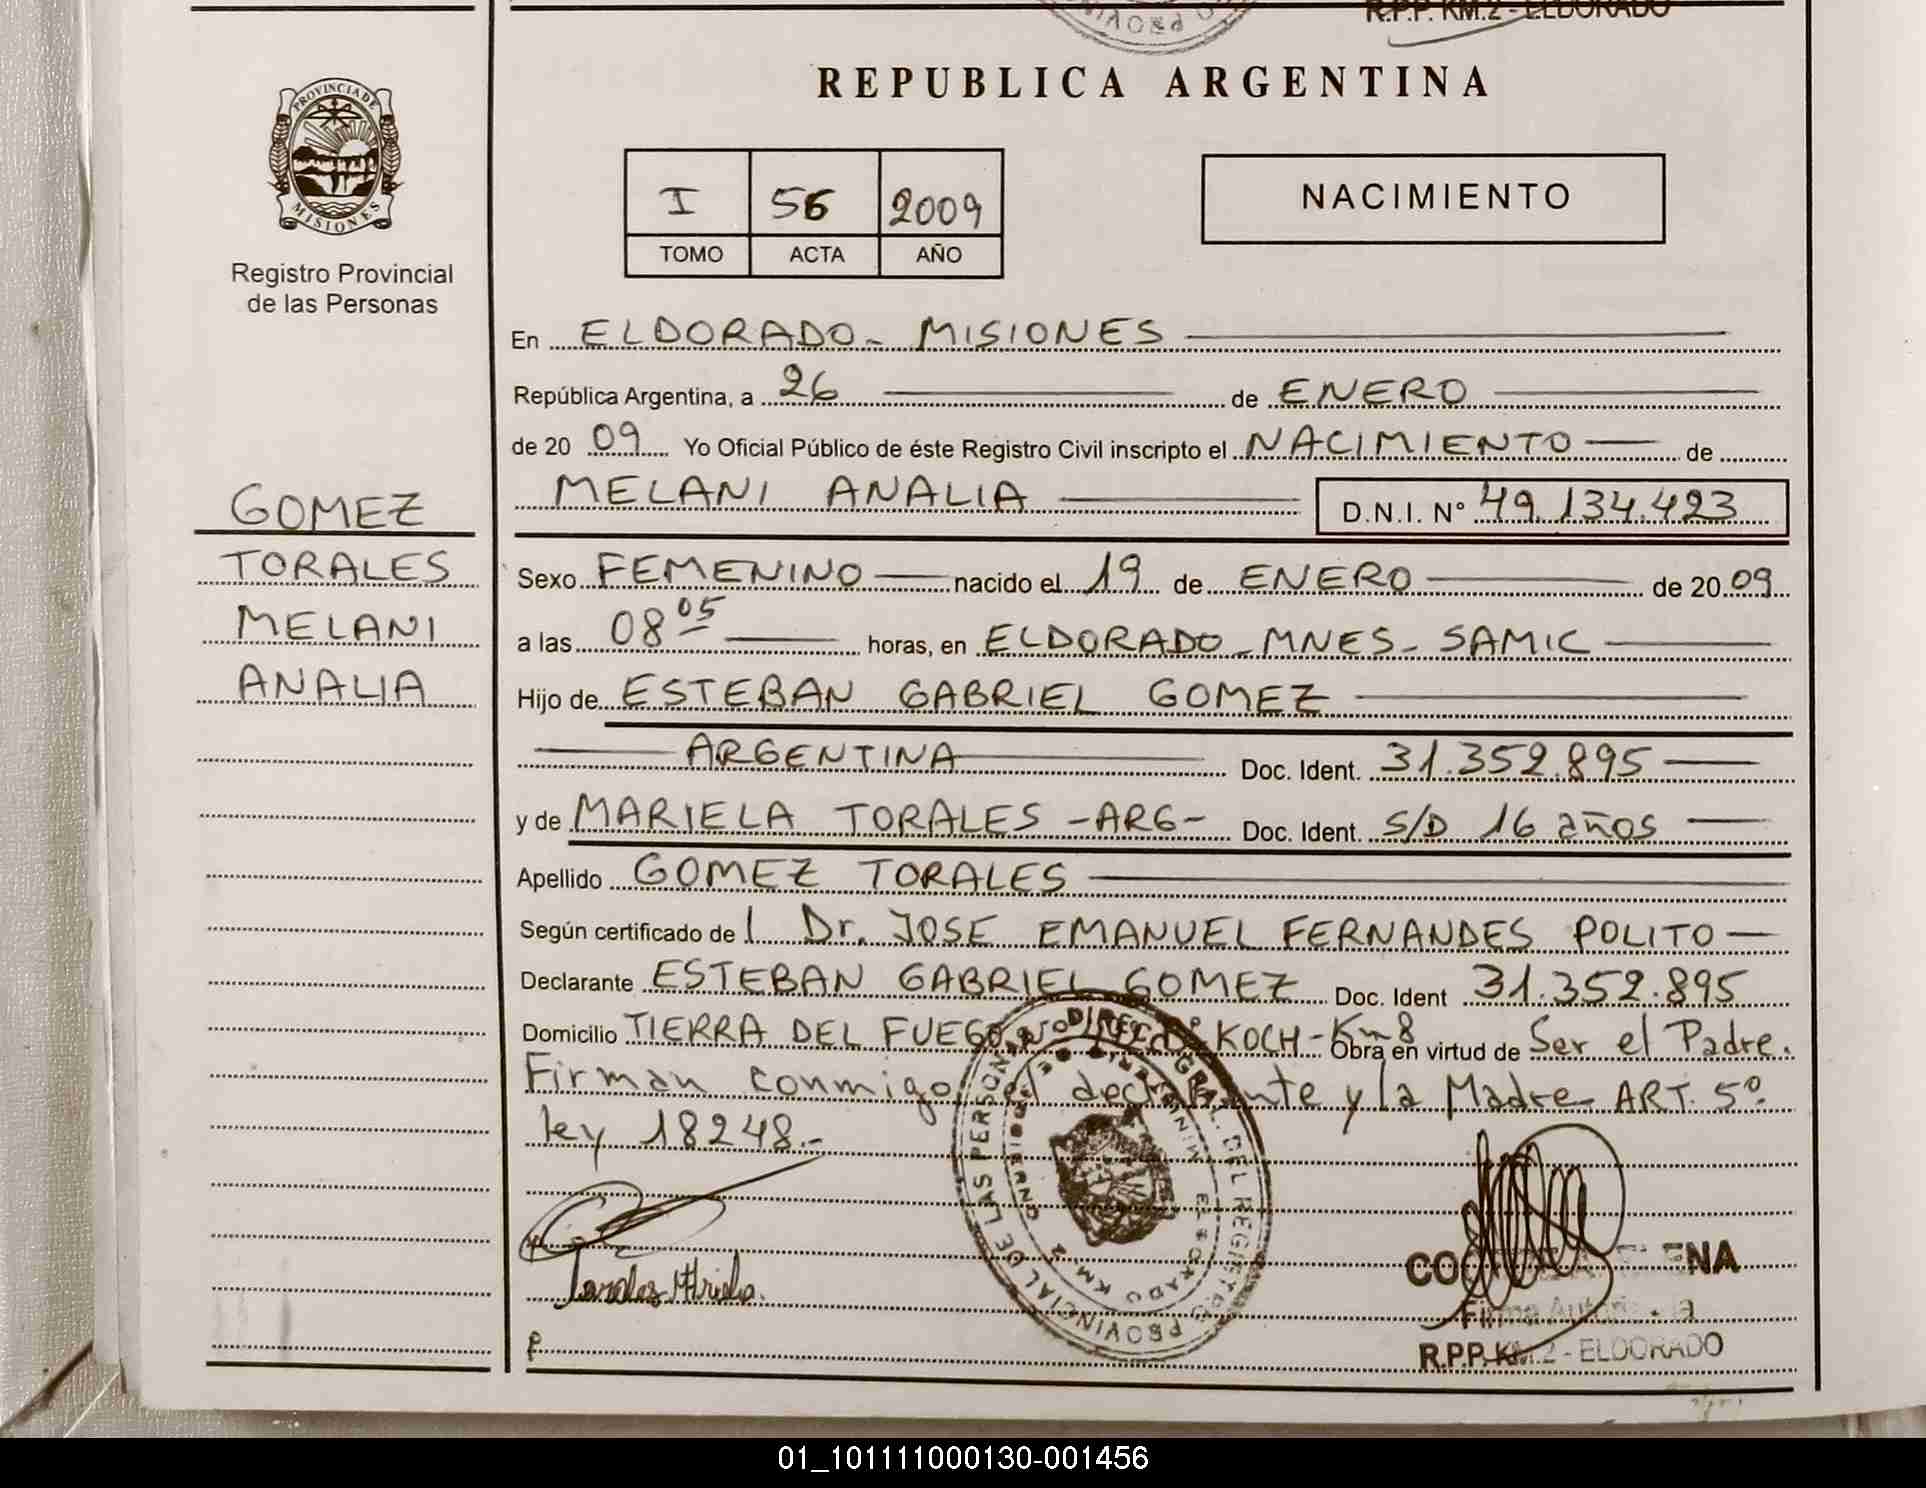 PROVINCIA
R.P.P. KM.2 - ELDORADO
REPUBLICA ARGENTINA
PROVINCIA DE
MISIONES
Registro Provincial
de las Personas
I 56 2009
TOMO ACTA AÑO
NACIMIENTO
En ELDORADO - MISIONES
República Argentina, a 26 de ENERO
de 20 09 Yo Oficial Público de éste Registro Civil inscripto el NACIMIENTO de
MELANI ANALIA D.N.I. N° 49.134.423
GOMEZ
TORALES
MELANI
ANALIA
Sexo FEMENINO nacido el 19 de ENERO de 20 09
a las 08 05 horas, en ELDORADO - MNES - SAMIC
Hijo de ESTEBAN GABRIEL GOMEZ
ARGENTINA Doc. Ident. 31.352.895
y de MARIELA TORALES - ARG - Doc. Ident. S/D 16 años
Apellido GOMEZ TORALES
Según certificado de l Dr. JOSE EMANUEL FERNANDES POLITO
Declarante ESTEBAN GABRIEL GOMEZ Doc. Ident 31.352.895
Domicilio TIERRA DEL FUEGO KOCH - Km 8 Obra en virtud de Ser el Padre.
Firman conmigo el declarante y la Madre ART. 5º
ley 18248.-
DIREC. GRAL. DEL REGISTRO PROVINCIAL DE LAS PERSONAS
ELDORADO KM 2
Torales
ELENA
Firma Autoriz
R.P.P. KM.2 - ELDORADO
01_101111000130-001456